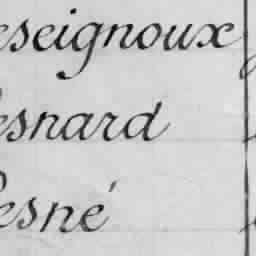 eseignoux
esnard
esné